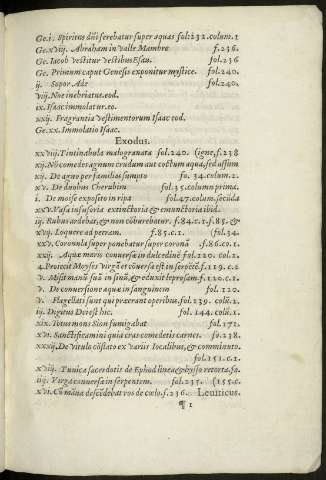 Ge.i. Spiritus dñi ferebatur super aquas fol:232.colum.1
Ge.xviij. Abraham in valle Mambre f.236.
Ge. Iacob vestitur vestibus Esau. fol.236
Ge. Primum caput Genesis exponitur mystice. fol.240.
ij. Sopor Adæ fol.240.
viij. Noe inebriatus. eod.
ix. Isaac immolatur. eo.
xxij. Fragrantia vestimentorum Isaac eod.
Ge.xx. Immolatio Isaac.
Exodus.
xxviij. Tintinabula malogranata fol.240. (igne, f.238
xij. Nō comedes agnum crudum aut coctum aqua, sed assum
xij. De agno per familias sumpto fo. 34. colum.2.
xxv. De duobus Cherubin fol.35. column prima.
i. De mose exposito in ripa fol.47. column. secūda
xxv. Vasa infusoria extinctoria & emunctoria ibid.
iij. Rubus ardebat, & non cōburebatur. f.84.c.1.f.85. &
xvij. Loquere ad petram. f.85.c.1 (fol.34.
xxv. Coronula super ponebatur super coronā f.86.co.1.
xxij. Aquæ maris conuersæ in dulcedinē fol.120. col.2.
4. Proiecit Moyses virgā et cōuersa est in serpētē. f.119.c.2
v. Misit manū suā in sinū, & eduxit leprosam. f.120.c.1.
v. De conuersione aquæ in sanguinem fol.120.
v. Flagellati sunt qui præerant operibus. fol.139. colū.1.
iij. Digitus Dei est hic. fol.144. colū.1.
xix. Totus mons Sion fumigabat fol.172.
xvi. Sanctificamini quia cras comedetis carnes. fo.138.
xxxij. De vitulo cōflato ex variis Iocalibus, & comminuto.
fol.151.c.1.
xviij. Tunica sacerdotis de Ephod linea & bysso retorta. fo.
iiij. Virga conuersa in serpentem. fol.237. (155.c.
xvi. Cū māna descēdebat ros de cœlo. f.236. Leuiticus.
¶ 1